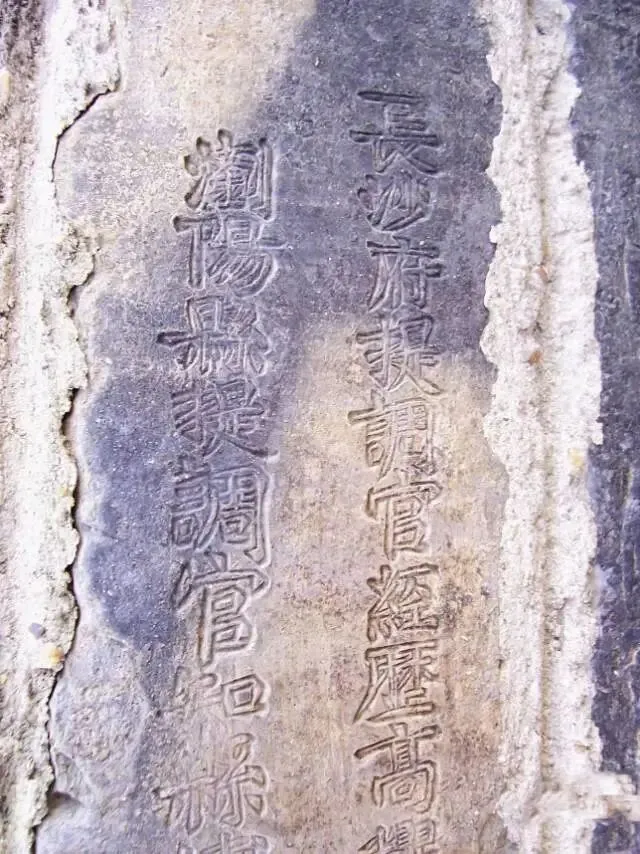 長沙府提調官經歷高
瀏陽縣提調官知縣